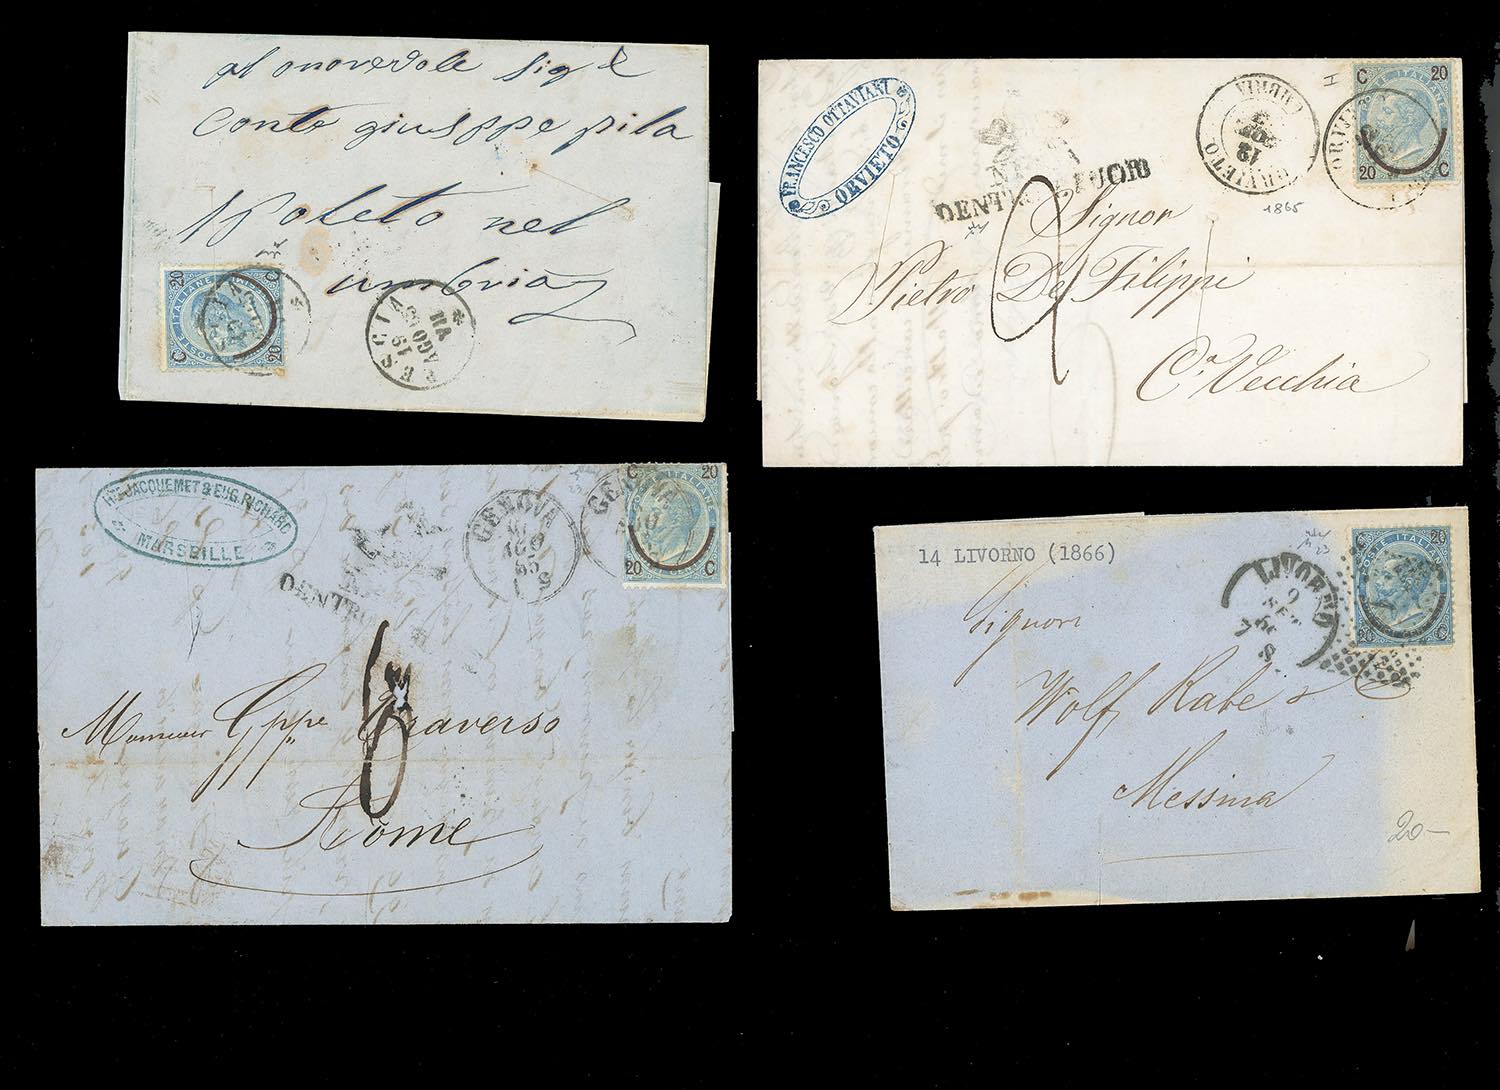 al onorevole Sig.e
Conte giuseppe pila
Spoleto nel
umbria
C 20
POSTE ITALIANE
20 C
PESCIA
19
AGO
65
FRANCESCO OTTAVIANI
ORVIETO
DENTRO FUORI
2
Signor
Pietro De Filippi
Ca. Vecchia
ORVIETO
UMBRIA
12
1865
I
C 20
POSTE ITALIANE
20 C
JACQUEMET & EUG. RICHARD
MARSEILLE
DENTRO
GENOVA
AGO
65
GENOVA
C 20
POSTE ITALIANE
20 C
Monsieur Gppe Traverso
Rome
14 LIVORNO (1866)
Signori
Wolf, Rabe & C
Messina
20-
LIVORNO
C 20
POSTE ITALIANE
20 C